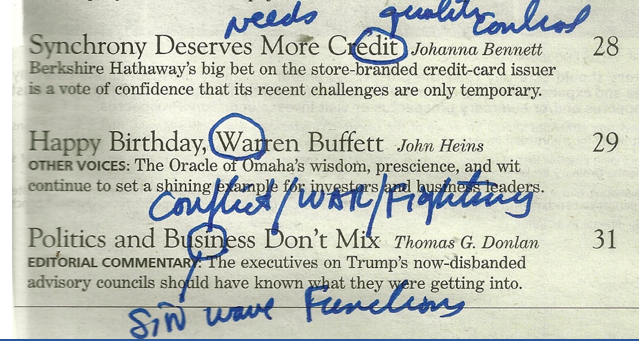 needs quality control
Synchrony Deserves More Credit Johanna Bennett 28
Berkshire Hathaway's big bet on the store-branded credit-card issuer
is a vote of confidence that its recent challenges are only temporary.
Happy Birthday, Warren Buffett John Heins 29
OTHER VOICES: The Oracle of Omaha's wisdom, prescience, and wit
continue to set a shining example for investors and business leaders.
Conflict/WAR/Fighting
Politics and Business Don't Mix Thomas G. Donlan 31
EDITORIAL COMMENTARY: The executives on Trump's now-disbanded
advisory councils should have known what they were getting into.
SIN wave Functions